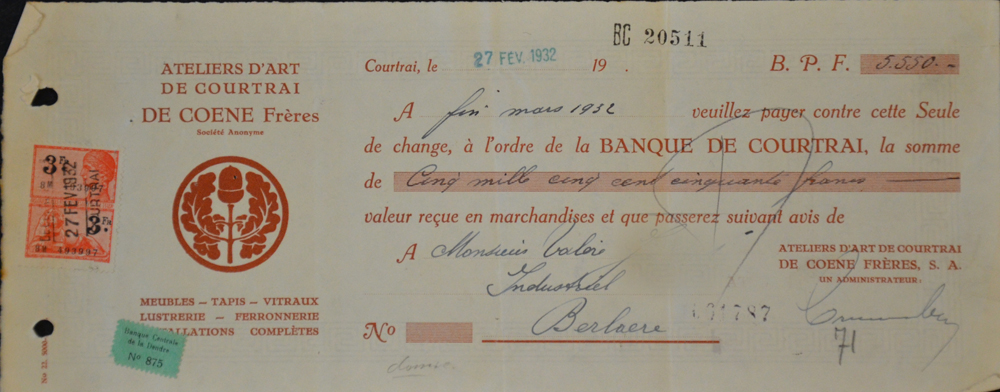 BC 20511
ATELIERS D'ART
DE COURTRAI
DE COENE Frères
Société Anonyme
MEUBLES – TAPIS – VITRAUX
LUSTRERIE – FERRONNERIE
ALLATIONS COMPLÈTES
Courtrai, le 27 FEV. 1932 19 .
B. P. F. 5.550.-
A fin mars 1932 veuillez payer contre cette Seule
de change, à l'ordre de la BANQUE DE COURTRAI, la somme
de Cinq mille cinq cent cinquante francs
valeur reçue en marchandises et que passerez suivant avis de
A Monsieur Valère
Industriel
Berlaere
ATELIERS D'ART DE COURTRAI
DE COENE FRÈRES, S. A.
UN ADMINISTRATEUR:
No
1787
71
3 Fr
27 FEV 1932
COURTRAI
3 Fr
Banque Centrale
de la Dendre
No 875